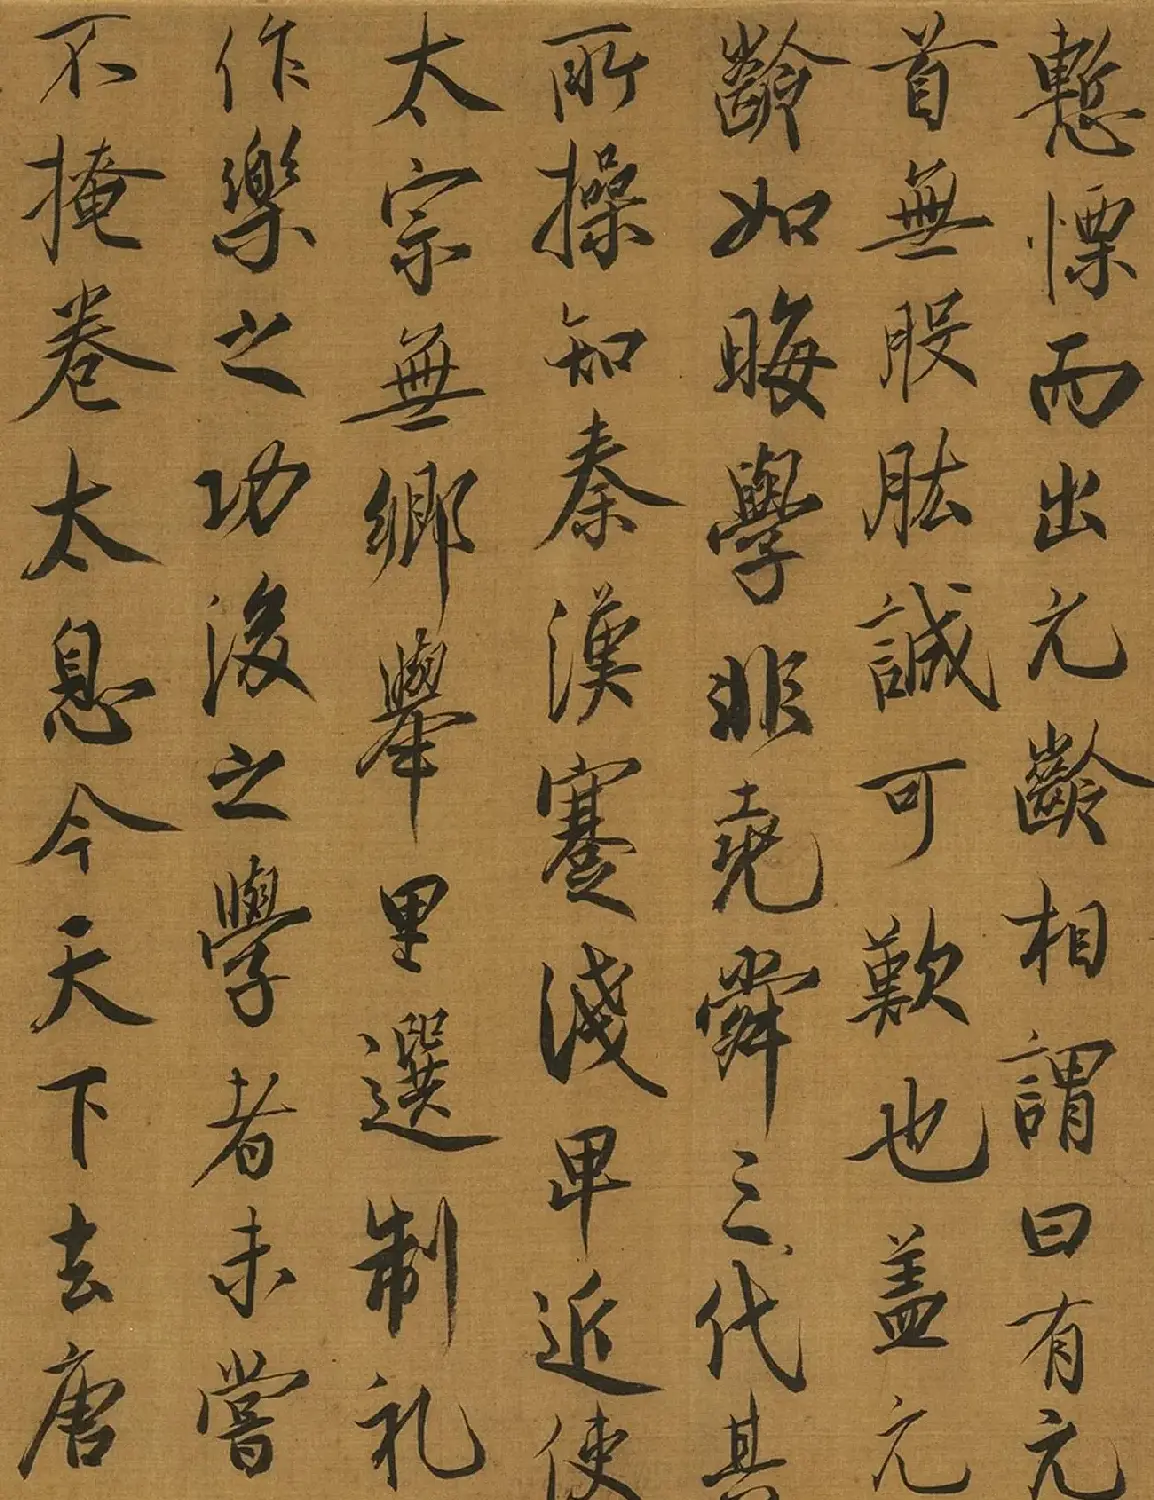 慙慄而出元齡相謂曰有元
首無股肱誠可歎也盖元
齡如晦學非堯舜三代其
所操知秦漢蹇淺卑近使
太宗無鄉舉里選制礼
作樂之功後之學者未嘗
不掩卷太息今天下去唐